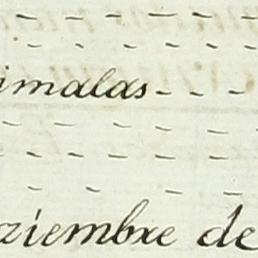 imalas - - -
ziembre de